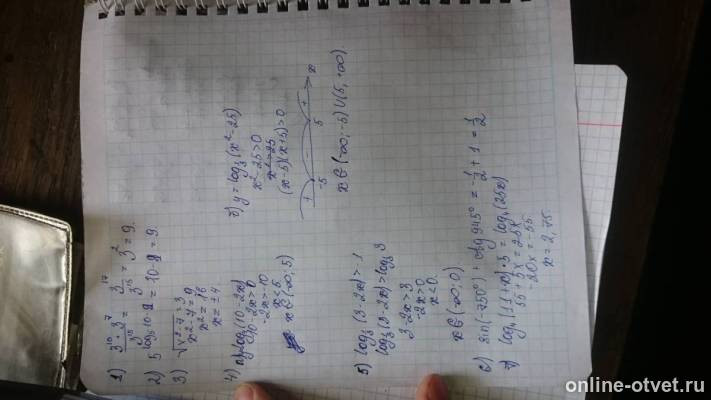 1) (3^10 · 3^7)/3^15 = 3^17/3^15 = 3^2 = 9.
2) 5^(log_5 10 - 1) = 10 - 1 = 9.
3) √(x²-7) = 3
x² - 7 = 9
x² = 16
x = ±4
4) log_3(10-2x)
10-2x>0
-2x>-10
x<5
x∈(-∞; 5)
5) log_3(3-2x)>1
log_3(3-2x)>log_3 3
3-2x>3
-2x>0
x<0
x∈(-∞; 0)
6) y = log_3(x²-25)
x²-25>0
x²=25
(x-5)(x+5)>0
+ - +
-5 5 x
x∈(-∞; -5)∪(5; +∞)
6) sin(-750°) + ctg 945° = -1/2 + 1 = 1/2
7) log_4(11+x)·5 = log_4(25x)
55+5x=25x
20x=-55
x=2,75.
online-otvet.ru